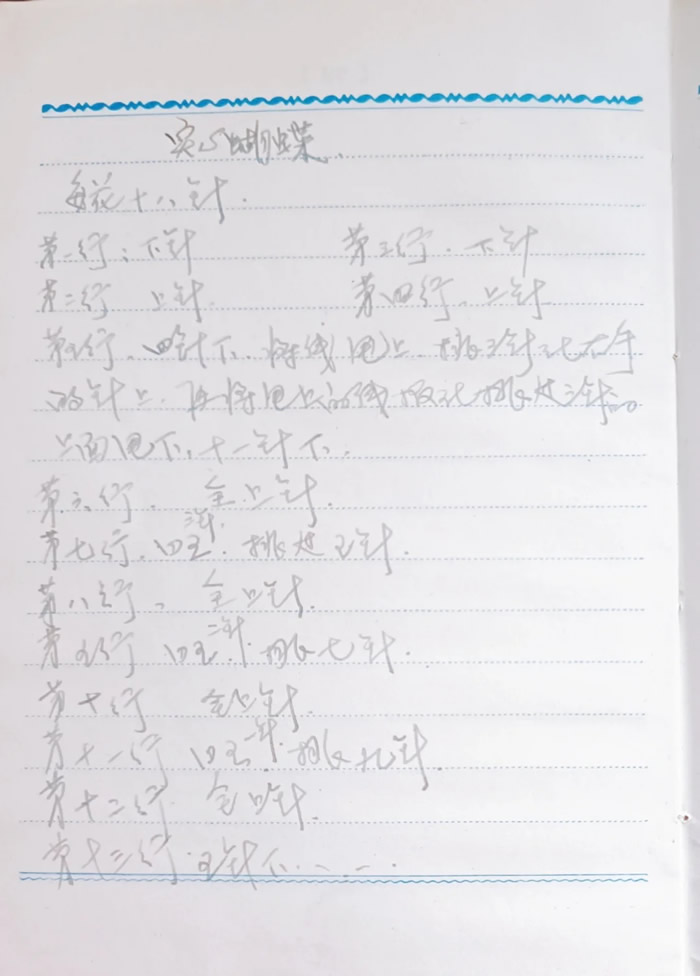 实心蝴蝶.
每花十八针.
第一行:下针 第三行.下针
第二行 上针 第四行.上针
第五行.四针下.将线甩上.挑三针比右手
的针上.再将甩上的线 挑过三针
上面甩下.十一针下.
第六行. 全上针.
第七行.四 三针.挑过五针.
第八行. 全上针.
第 行 二针.挑七针.
第十行 全上针.
第十一行 一针.挑九针.
第十二行 全上针.
第十三行. 针下.